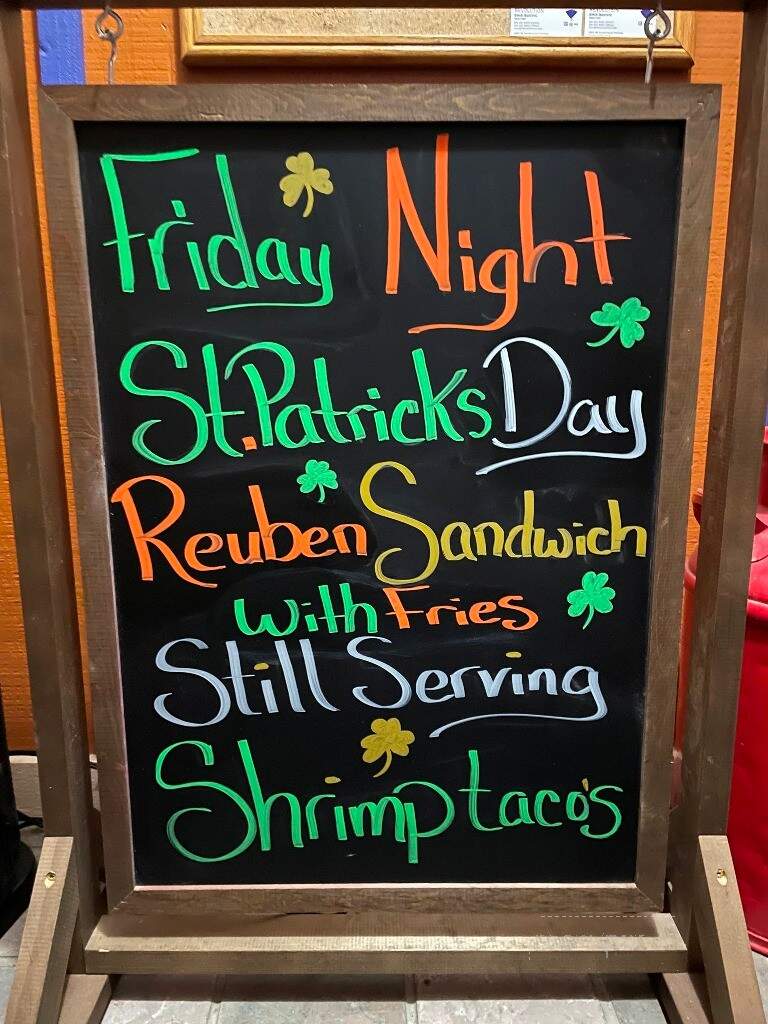 Friday Night
St. Patricks Day
Reuben Sandwich
with Fries
Still Serving
Shrimp taco's